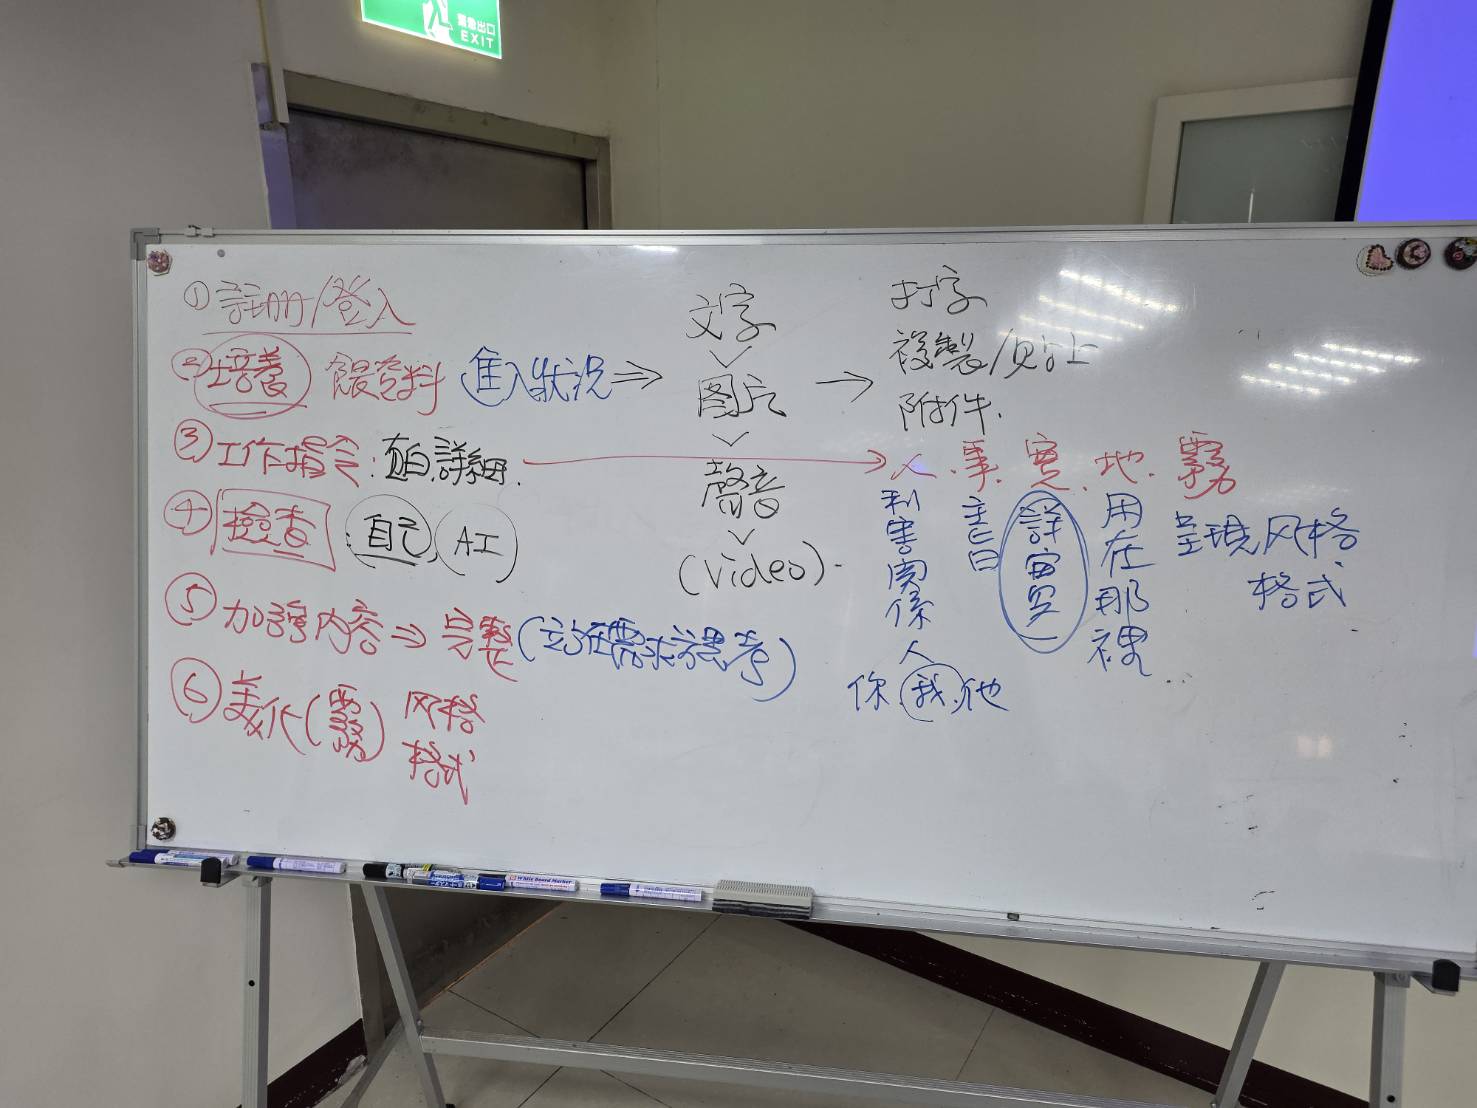 緊急出口
EXIT
①註冊/登入
②培養 餵資料 進入狀況⇒
③工作指令:直白,詳細.
④檢查:自己,AI
⑤加強內容⇒完整(站在需求者思考)
⑥美化( ) 风格
格式
文字
图片→
聲音
(video).
打字
複製/貼上
附件.
人.事.實.地.霧
利害関係人
你,我,他
主旨
詳實
用在那裡
呈現风格
格式
White Board Marker